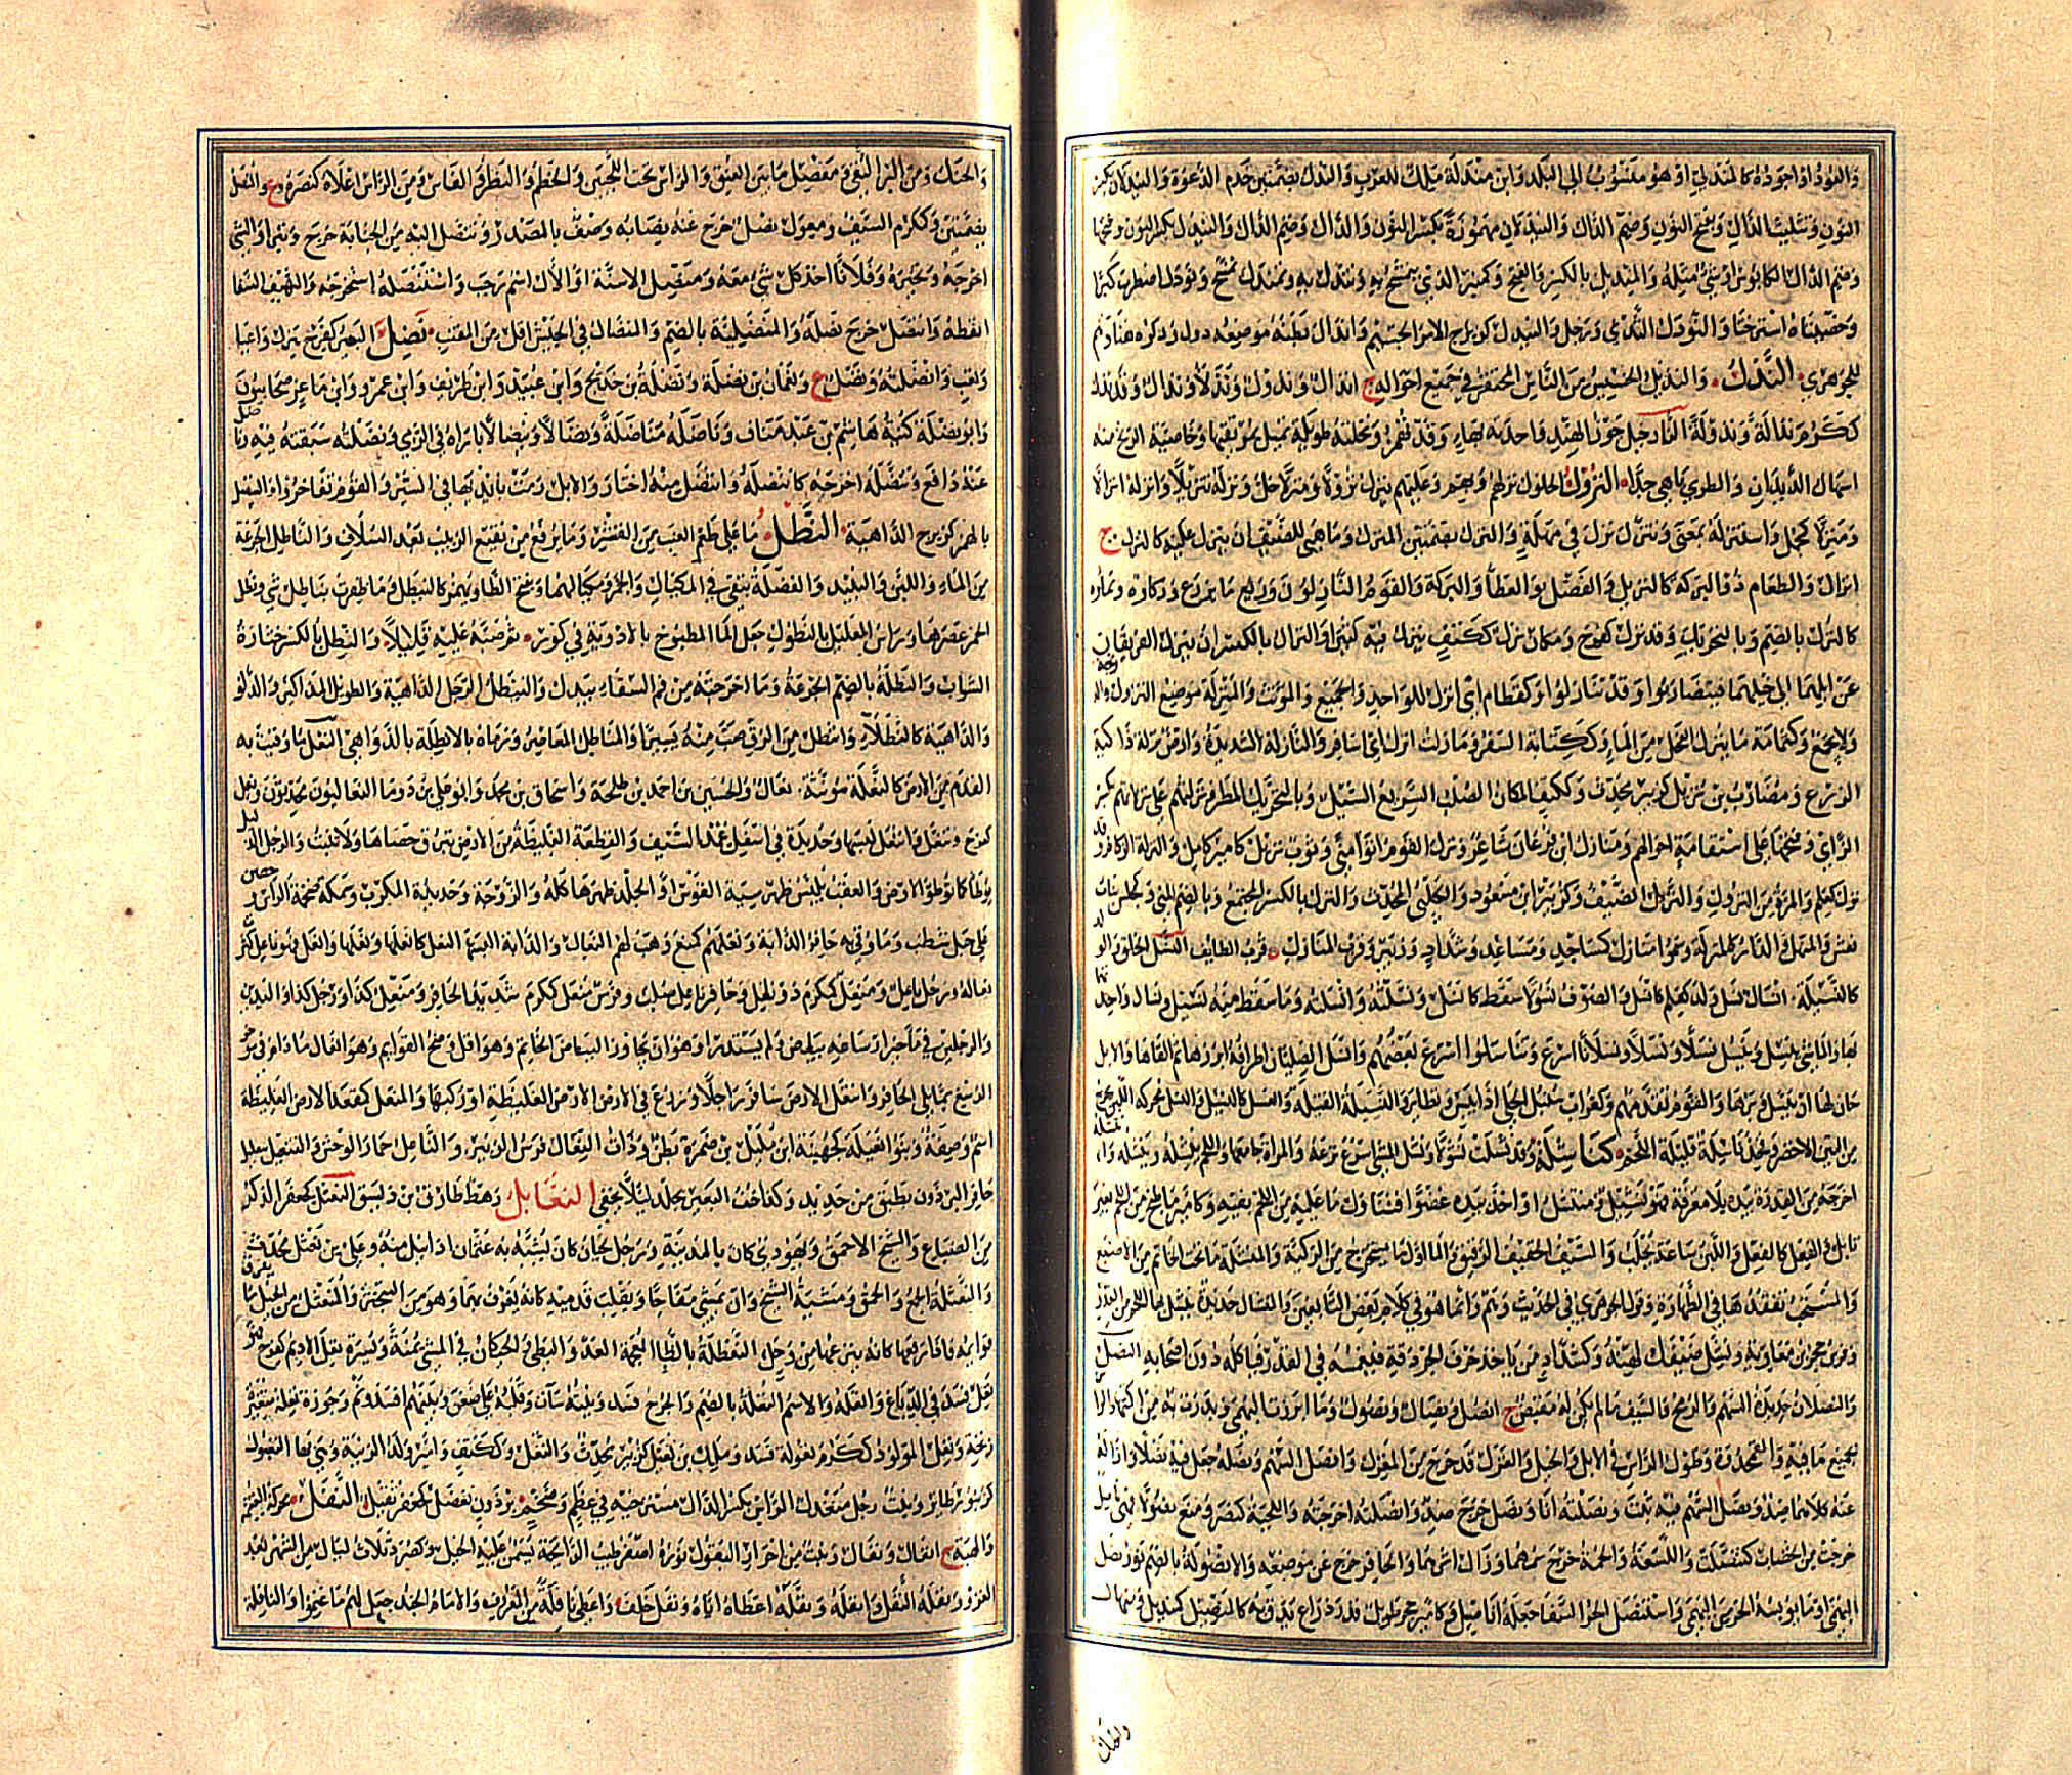 والعود او اجوده كالمندلي او هو منسوب الى البلد وابن مندلة ملك للعرب والندل بضمتين خدم الدعوة والنيدلان بكسر
النون وتثليث الدال وبفتح النون وضم الدال والنيدلان مهموزة بكسر النون والدال وضم الدال والنيدل بكسر النون وفتحها
وضم الدال الكابوس او شيء مثله والمنديل بالكسر والفتح وكمنبر الذي يتمسح به وتندل به وتمندل تمسح ونودل اضطرب كبرا
وخصيتاه استرختا والنودل الثدي ورجل والنيدل كزبرج الامر الجسيم واندال بطنه موضعه دول وذكره هنا وهم
للجوهري النذل والنذيل الخسيس من الناس المحتقر في جميع احواله ج انذال ونذول ونذلاء ونذال وقد نذل
ككرم نذالة ونذولة النارجيل جوز الهند واحدته بهاء وقد تهمز ونخلته طويلة تميل بمرتقيها وخاصية الزنخ منه
اسهال الديدان والطري باهي جدا النزول الحلول نزلهم وبهم وعليهم ينزل نزولا ومنزلا حل ونزله تنزيلا وانزله انزالا
ومنزلا كمجمل واستنزله بمعنى وتنزل نزل في مهلة والنزل بضمتين المنزل وما هيئ للضيف ان ينزل عليه كالنزل ج
انزال والطعام ذو البركة كالنزيل والفضل والعطاء والبركة والقوم النازلون وريع ما يزرع وزكاؤه ونماؤه
كالنزل بالضم وبالتحريك وقد نزل كفرح ومكان نزل ككتف ينزل فيه كثيرا والنزال بالكسر ان ينزل الفريقان
عن ابلهما الى خيلهما فيتضاربوا وقد تنازلوا وكقطام اي انزل للواحد والجميع والمؤنث والمنزلة موضع النزول والدرجة
ولا يجمع وكثمامة ما ينزل الفحل من الماء وككتابة السفر وما زلت انزل اي اسافر والنازلة الشديدة وارض نزلة زاكية
الزرع ومضارب بن نزيل كزبير محدث وككتف المكان الصلب السريع السيل وبالتحريك المطر وتركتهم على نزلاتهم بكسر
الزاي وفتحها على استقامة احوالهم ومنازل ابن فرعان شاعر ونزل القوم اتوا منى وثوب نزيل كامير كامل والنزلة الزكام وقد
نزل كعلم والمرة من النزول والنزيل الضيف وكزبير ابن مسعود والحلبي المحدث والنزل بالكسر المجتمع وبالضم المني وكمجلس بنات
نعش والمنهل والدار كالمنزلة وسموا منازل كمساجد ومساعد وشداد وزبير وقرن المنازل قرب الطائف النسل الخلق والولد
كالنسيلة انسال نسل ولد كعلم كانسل والصوف نسولا سقط كانسل ونسلته وانسلته وما سقط منه نسيل ونسال واحدتهما
بهاء والماشي ينسل وينسل نسلا ونسلا ونسلانا اسرع وتناسلوا اسرع بعضهم وانسل الصليان اطرافه ابرزها ثم القاها والابل
حان لها ان ينسل وبرها والقوم تقدمهم وكغراب سنبل الحلي اذا يبس وتطاير والنسيلة الفتيلة والعسل كالنسيل والنسل محركة اللبن يخرج
من التين الاخضر وفخذ ناشلة قليلة اللحم كناشلة وقد نشلت نشولا ونشل الشيء اسرع نزعه والمرأة جامعها واللحم ينشله وينشله وانتشله
اخرجه من القدر بيده بلا مغرفة فهو نشيل ومنتشل او اخذ بيده عضوا فتناول ما عليه من اللحم بفيه وكامير ما طبخ من اللحم بغير
تابل والفعل كالفعل واللبن ساعة يحلب والسيف الخفيف الرقيق والماء اول ما يستخرج من الركية والمنشلة ما تحت الخاتم من الاصبع
والمستحب تفقدها في الطهارة وقول الجوهري في الحديث وهم وانما هو في كلام بعض التابعين والمنشال حديدة ينشل بها اللحم من القدر
وفرس حجر بن معاوية ونشل ضيفك لهنه وكشداد من ياخذ حرف الجردقة فيغمسه في القدر فياكله دون اصحابه النصل
والنصلان حديدة السهم والرمح والسيف ما لم يكن له مقبض ج انصل ونصال ونصول وما ابرزت البهمى وبدرت به من اكمتها والراس
بجميع ما فيه والقمحدوة وطول الراس في الابل والخيل والغزل قد خرج من المغزل وانصل السهم ونصله جعل فيه نصلا وازاله
عنه كلاهما ضد ونصل السهم فيه ثبت ونصلته انا ونصل خرج ضد وانصلته اخرجته واللحية كنصر ومنع نصولا فهي ناصل
خرجت من الخضاب كتنصلت واللسعة والحمة خرج سمهما وزال اثرهما والحافر خرج عن موضعه والانصولة بالضم نور نصل
البهمى او ما يوبسه الحر من البهمى واستنصل الحر السفا جعله اناصيل وكامير حجر طويل قدر ذراع يدق به كالنصيل كمنديل ومنهال
والحنك
والحنك ومن البر النقي ومفصل ما بين العنق والراس تحت اللحيين والخطم والبظر والفاس ومن الراس اعلاه كنصره ع والمنصل
بضمتين وككرم السيف ومعول نصل خرج عنه نصابه وصف بالمصدر وتنصل اليه من الجناية خرج وتبرأ والشيء
اخرجه وتخيره وفلانا اخذ كل شيء معه ومنصل الاسنة او الال اسم رجب واستنصله استخرجه والهيف السفا
اسقطه وانتصل خرج نصله والمنصلية بالضم والنصال في الجيش اقل من المقنب نضل البعير كفرح هزل واعيا
وتعب وانضلته ونضل ع ونعمان بن نضلة ونضلة بن خديج وابن عبيد وابن طريف وابن عمرو وابن ماعز صحابيون
وابو نضلة كنية هاشم بن عبد مناف وناضله مناضلة ونضالا ونيضالا باراه في الرمي ونضلته سبقته فيه وناضل
عنه دافع وتنضله اخرجه كانتضله وانتضل منه اختار والابل رمت بايديها في السير والقوم تفاخروا والنيضل
بالهمز كزبرج الداهية النطل ما على طعم العنب من القشر وما يرفع من نقيع الزبيب بعد السلاف والناطل الجرعة
من الماء واللبن والنبيذ والفضلة تبقى في المكيال والخمر ومكيالها وبفتح الطاء ويهمز كالنيطل وما ظفرت بناطل شيء ونطل
الخمر عصرها وراس العليل بالنطول جعل الماء المطبوخ بالادوية في كوز ثم صبه عليه قليلا والنطل بالكسر خثارة
الشراب والنطلة بالضم الجرعة وما اخرجته من فم السقاء بيدك والنيطل الرجل الداهية والطويل المذاكير والدلو
والداهية كالنطلاء وانتطل من الزق صب منه يسيرا والمناطل المعاصر ورماه بالانطلة بالدواهي النعل ما وقيت به
القدم من الارض كالنعلة مؤنثة نعال والحسين بن احمد بن طلحة واسحاق بن محمد وابو علي بن دوما النعاليون محدثون ونعل
كفرح وتنعل وانتعل لبسها وحديدة في اسفل غمد السيف والقطعة الغليظة من الارض يبرق حصاها ولا تنبت والرجل الذليل
يوطأ كما توطأ الارض والعقب يلبس ظهر سية القوس او الجلد ظهرها كله والزوجة وحديدة المكرب وسمكة ضخمة الراس وحصن
على جبل شطب وما وقي به حافر الدابة ونعلهم كمنع وهب لهم النعال والدابة البسها النعل كانعلها ونعلها وانعل فهو ناعل كثرت
نعاله ورجل ناعل ومنعل ككرم ذو نعل وحافر ناعل صلب وفرس منعل ككرم شديد الحافر ومنعل يد كذا او رجل كذا او اليدين
والرجلين في مآخير ارساغه بياض ولم يستدر او هو ان يجاوز البياض الخاتم وهو اقل وضح القوائم وهو انعال ما دام في مؤخر
الرسغ مما يلي الحافر وانتعل الارض سافر راجلا وزرع في الارض الغليظة او ركبها والمنعل كمقعد الارض الغليظة
اسم وصفة وبنو نعيلة كجهينة ابن مليل بن ضمرة بطن وذات النعال فرس الزبير والناعل حمار الوحش والتنعيل تنعيلك
حافر البرذون بطبق من حديد وكذا خف البعير بجلد لئلا يحفى النعابل رهط طارق بن ديسق النعثل كجعفر الذكر
من الضباع والشيخ الاحمق ويهودي كان بالمدينة ورجل لحياني كان يشبه به عثمان اذا نيل منه وعلي بن نعثل محدث
والنعثلة الجمع والحمق ومشية الشيخ وان يمشي مفاجا ويقلب قدميه كانه يغرف بهما وهو من التبختر والمنعثل من الخيل ما يفرق
قوائمه فاذا رفعها كانه ينزعها من وحل النعظلة بالظاء المعجمة العدو البطيء والحيكان في المشي يمنة ويسرة نغل الاديم كفرح فهو
نغل فسد في الدباغ وانغله والاسم النغلة بالضم والجرح فسد ونيته ساءت وقلبه علي ضغن وبينهم افسد ونم وجوزة نغلة متغيرة
زنخة ونغل المولود ككرم نغولة فسد ومالك بن نغيل كزبير محدث والنغل وككتف وامير ولد الزنية وهي بهاء النغبول
كزنبور طائر ونبت رجل منغدل الراس بكسر الدال مسترخيه في عظم وضخم برذون نغضل كجعفر ثقيل النفل محركة الغنيمة
والهبة ج انفال ونفال ونبت من احرار البقول نوره اصفر طيب الرائحة تسمن عليه الخيل وكصرد ثلاث ليال من الشهر بعد
الغرر ونفله النفل وانفله ونفله اعطاه اياه ونفل حلف واعطى نافلة من المعروف والامام الجند جعل لهم ما غنموا والنافلة